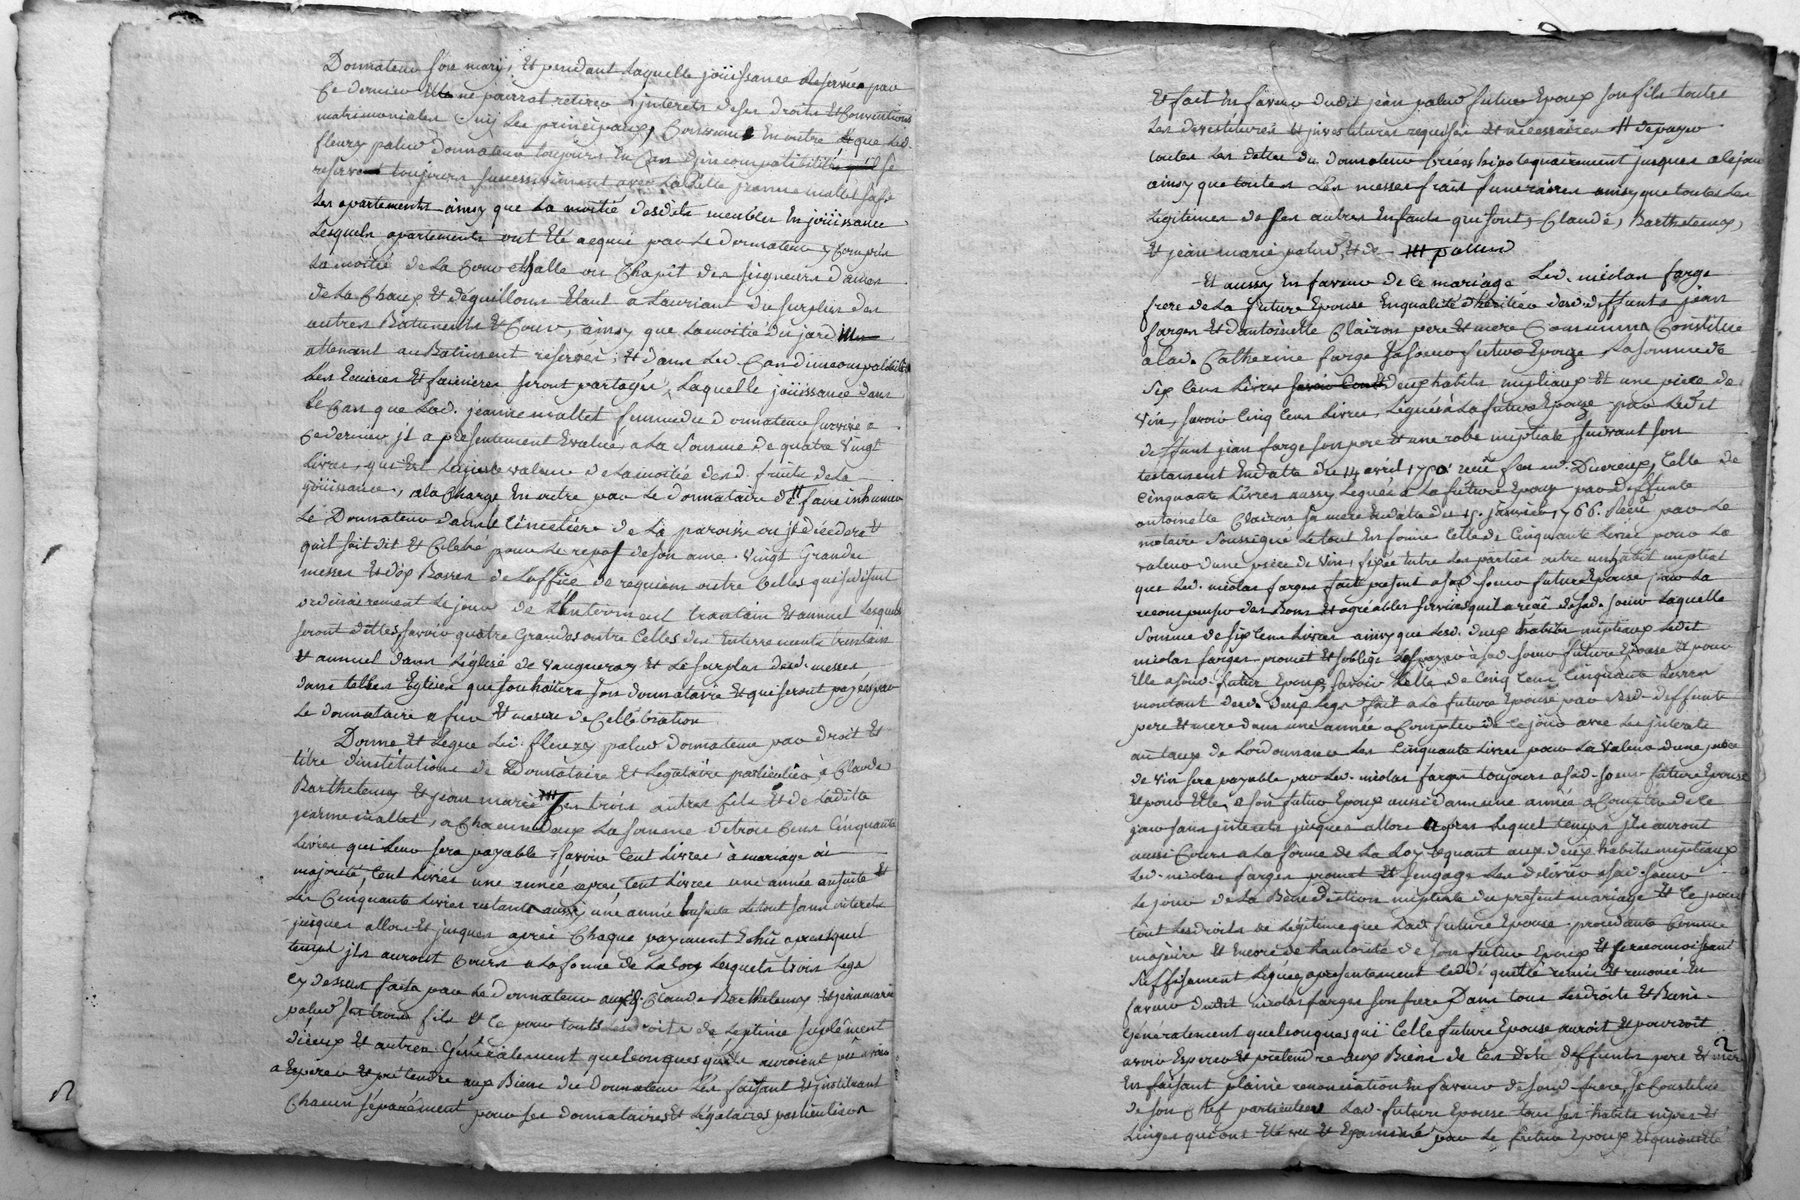 Donnateur son mary, Et pendant Laquelle joüissance Reservée par
Ce dernier Elle ne pourrat retirer d'interets de ses droits Et Conventions
matrimoniales Suj Les principaux, Comme En outre que Led.
fleury palud donnateur toujours En Cas d'incompatibilité se
reserve toujours successivement avec Laditte jeanne mallet sa fe
Les apartements ainsy que La moitié desdits meubles En joüissance
Lesquels apartements ont Eté acquis par Le donnateur y Compris
La moitié de La Cour Et Salle ou Chapit des seigneurs dames
de La Chaux Et d'éguillons Etant a L'auriant du surplus des
autres Bâtiments Et Cour, ainsy que La moitié du jardin
attenant au Batiment reservés; Et dans Led. Cas d'incompatibilité
Les Ecuries Et fainieres seront partagés, Laquelle joüissance dans
Le Cas que Lad. jeanne mallet femme du donnateur survive a
Ce dernier jl a presentement Evalué a La Somme de quatre Vingt
Livres, qui Est La juste valeur de La moitié desd. fruits de La
joüissance, a la Charge En outre par Le donnataire de faire inhumer
Le Donnateur dans le Cimetière de La paroisse ou jl décédera Et
quil soit dit Et Celebré pour Le repos de son ame Vingt Grandes
messes Et dix Basses de L'office de requiem outre Celles qui se disent
ordinairement Le jour de L'Enterrement trantain Et annuel Lesquels
seront dittes, savoir quatre Grandes outre Celles des Enterrements trantain
Et annuel dans L'église de Vaugneray Et Le surplus desd. messes
dans telles Eglises que souhaitera son donnataire Et qui seront payés par
Le donnataire a fur Et mesure de Cellébration
Donne Et Legue Led. fleury palud donnateur par droit Et
titre d'institution de donnataire Et Legataire particulier à Claude
Barthelemy Et jean marie ses trois autres fils Et de Laditte
jeanne mallet, a Chacun deux La somme de trois Cens Cinquante
Livres qui Leur sera payable, savoir Cent Livres à mariage ou
majorité, Cent Livres une année apres Cent Livres une année ensuite Et
Les Cinquante Livres restants aussy une année Ensuite Le tout sans interets
jusques allors Et jusques aprés Chaque payement Echû apres quel
temps jls auront Cours a La forme de La Loy Lesquels trois Legs
Cy dessus faits par Le Donnateur auxd. Claude Barthelemy Et jean marie
palud ses trois fils Et Ce pour touts Les droits de Legitime suplément
d'iceux Et autres Généralement quelconques qu'ils auroient
a Esperer Et prétendre aux Biens du Donnateur Les faisant Et instituant
Chacun séparément pour ses donnataires Et Légataires particuliers
Et fait En faveur dudit jean palud futur Epoux son fils toutes
Les devestitures Et jnvestitures requises Et nécessaires
toutes Les dettes du donnateur Créées hipotequairement jusques a le jour
ainsy que toutes Les messes frais funeraires ainsy que toutes Les
Légitimes de ses autres Enfants qui sont, Claude, Barthelemy,
Et jean marie palud, Et de
Et aussy En faveur de Ce mariage Led. nicolas farge
frere de La future Epouse En qualité d'héritier desd. deffunts jean
farges Et d'antoinette Clairon pere Et mere Communs Constitue
a lad. Catherine farge sa soeur future Epouze La somme de
Six Cens Livres deux habits nuptiaux Et une piece de
Vin, savoir Cinq Cens Livres, Legués à La future Epouze par Ledit
deffunt jean farge son pere Et une robe nuptiale suivant son
testament En datte du 14 avril receu Celle de
Cinquante Livres aussy Leguée a La future Epouze par deffunte
antoinette Clairon sa mere En datte du 15. janvier 1766. Receu par Le
notaire Soussigné Le tout En forme Celle de Cinquante Livres pour La
valeur d'une piece de Vin, fixée Entre Les parties outre un habit nuptial
que Led. nicolas farges fait present a sad. soeur future Epouse pour La
recompenser des Bons Et agréables services quil a reçû de sad. soeur Laquelle
Somme de six Cens Livres ainsy que Lesd. deux habits nuptiaux Ledit
nicolas farges promet Et soblige de payer à sad. soeur future Epouse Et pour
Elle a sond. futur Epoux, savoir Celle de Cinq Cens Cinquante Livres
montant desd. deux Legs fait a La future Epouse par Lesd. deffunts
pere Et mere dans une année a Compter de Ce jour avec Les jnterets
au taux de Lordonnance Les Cinquante Livres pour La Valeur d'une piece
de Vin sera payable par Led. nicolas farges toujours a sad. soeur future Epouse
Et pour Elle, a son futur Epoux aussi dans une année a Compter de Ce
jour sans jnterets jusques allors apres Lequel temps jls auront
aussi Cours a La forme de La Loy, Et quant aux deux habits nuptiaux
Led. nicolas farges promet Et sengage Les delivrer a sad. soeur
Le jour de La Benediction nuptiale du present mariage Et Ce pour
tout Les droits de Légitime que Lad. future Epouse procedante Comme
majeure Et Encore de L'autorité de son futur Epoux Et se reconnoissant
suffisament Léguée, apresentement Cedé quitté remis Et renoncé En
faveur dudit nicolas farges son frere Dans tous Les droits Et Biens
Généralement quelconques qui Celle future Epouse auroit Et pourroit
avoir Esperer Et prétendre aux Biens de Ces dits deffunts pere Et mere
En faisant plaine renonciation En faveur de sond. frere, se Constitue
de son Chef particulier Lad. future Epouse tous ses habits nipes Et
Linges qui ont Eté vu Et Examiné par Le futur Epoux